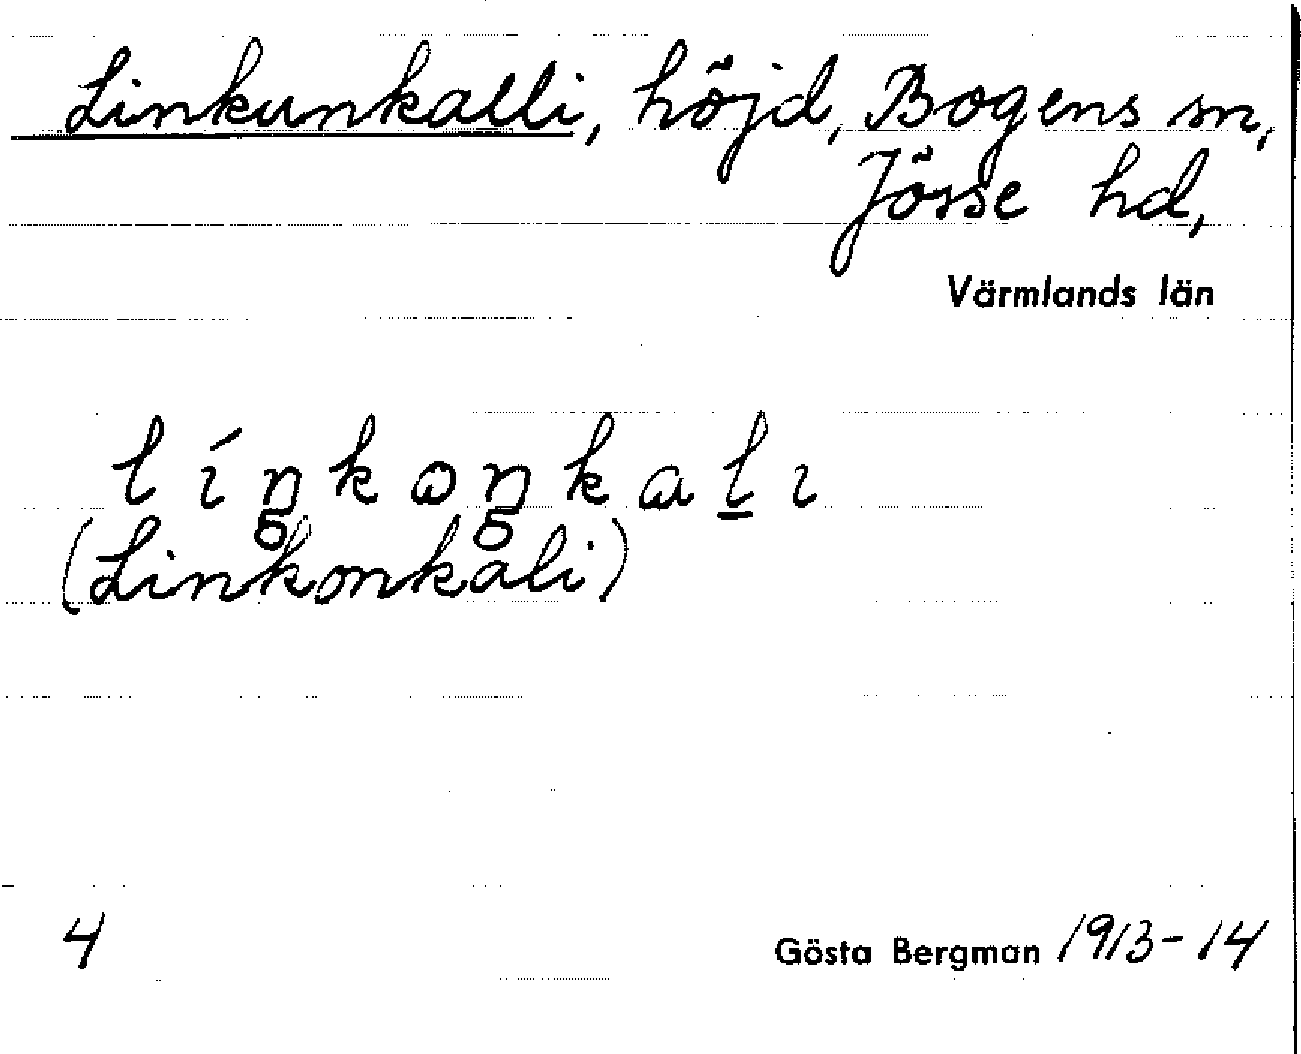 Linkunkalli, höjd, Bogens sn,
Jösse hd,
Värmlands län
lı́ŋkωŋkaḻı
(Linkonkali)
4
Gösta Bergman 1913-14